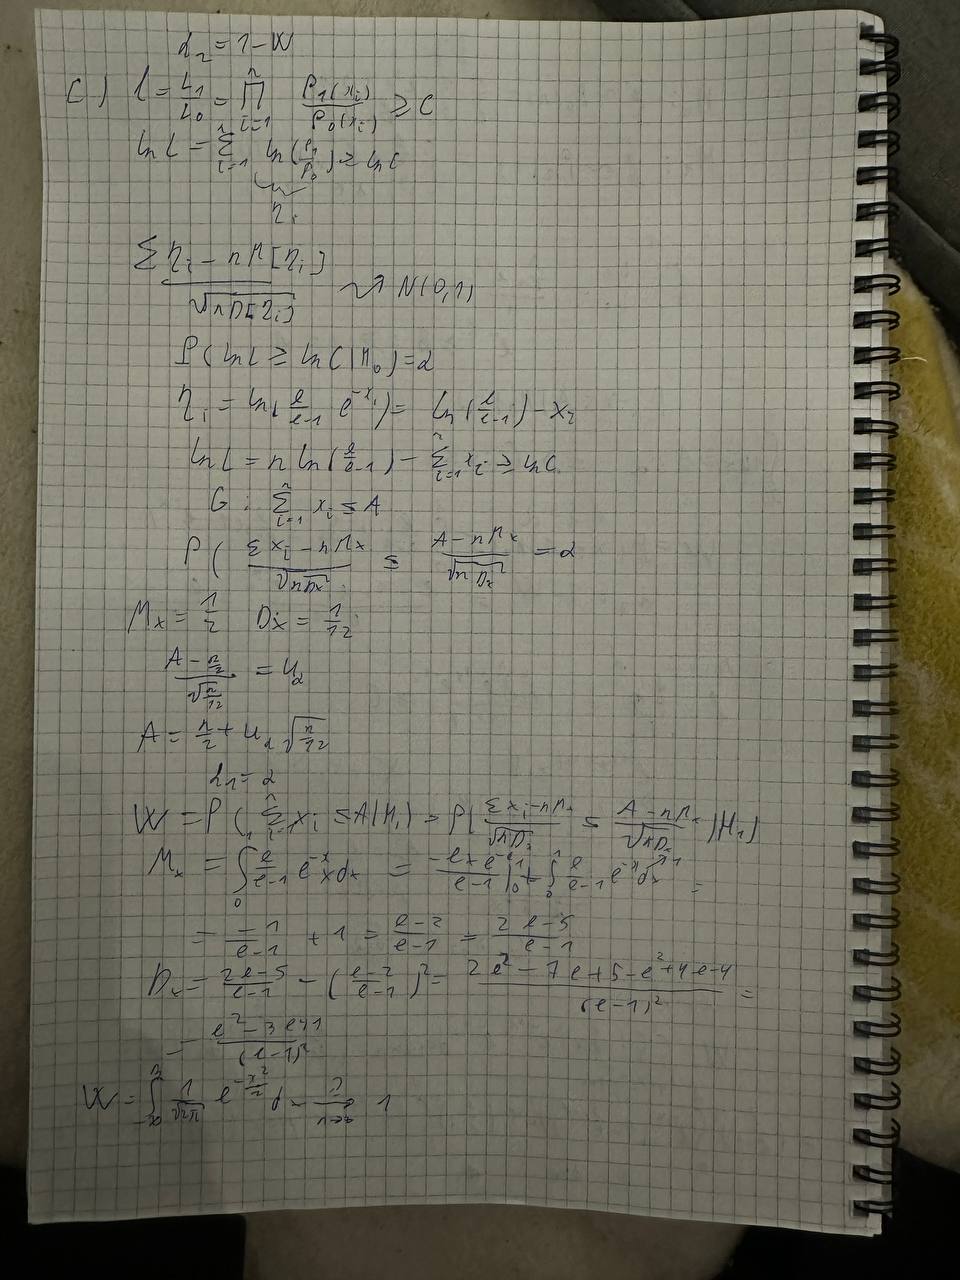 α₂ = 1 - W
c) l = L₁/L₀ = ∏_{i=1}^{n} P₁(xᵢ)/P₀(xᵢ) ≥ C
ln l = Σ_{i=1}^{n} ln(P₁/P₀) ≥ ln C
ηᵢ
(Σ ηᵢ - nM[ηᵢ]) / √(nD[ηᵢ]) ⇝ N(0,1)
P(ln l ≥ ln C | H₀) = α
ηᵢ = ln(e/(e-1) e^{-xᵢ}) = ln(e/(e-1)) - xᵢ
ln l = n ln(e/(e-1)) - Σ_{i=1}^{n} xᵢ ≥ ln C
G : Σ_{i=1}^{n} xᵢ ≤ A
P( (Σ xᵢ - nMₓ)/√(nDₓ) ≤ (A - nMₓ)/√(nDₓ) = α
Mₓ = 1/2 Dₓ = 1/12
(A - n/2)/√(n/12) = u_α
A = n/2 + u_α √(n/12)
α₁ = α
W = P(Σ_{i=1}^{n} xᵢ ≤ A | H₁) = P( (Σ xᵢ - nMₓ)/√(nDₓ) ≤ (A - nMₓ)/√(nDₓ) | H₁)
Mₓ = ∫₀¹ e/(e-1) e^{-x} x dx = (-e x e^{-x})/(e-1) |₀¹ + ∫₀¹ e/(e-1) e^{-x} dx =
= -1/(e-1) + 1 = (e-2)/(e-1) = (2e-5)/(e-1)
Dₓ = (2e-5)/(e-1) - ((e-2)/(e-1))² = (2e² - 7e + 5 - e² + 4e - 4)/(e-1)² =
= (e² - 3e + 1)/(e-1)²